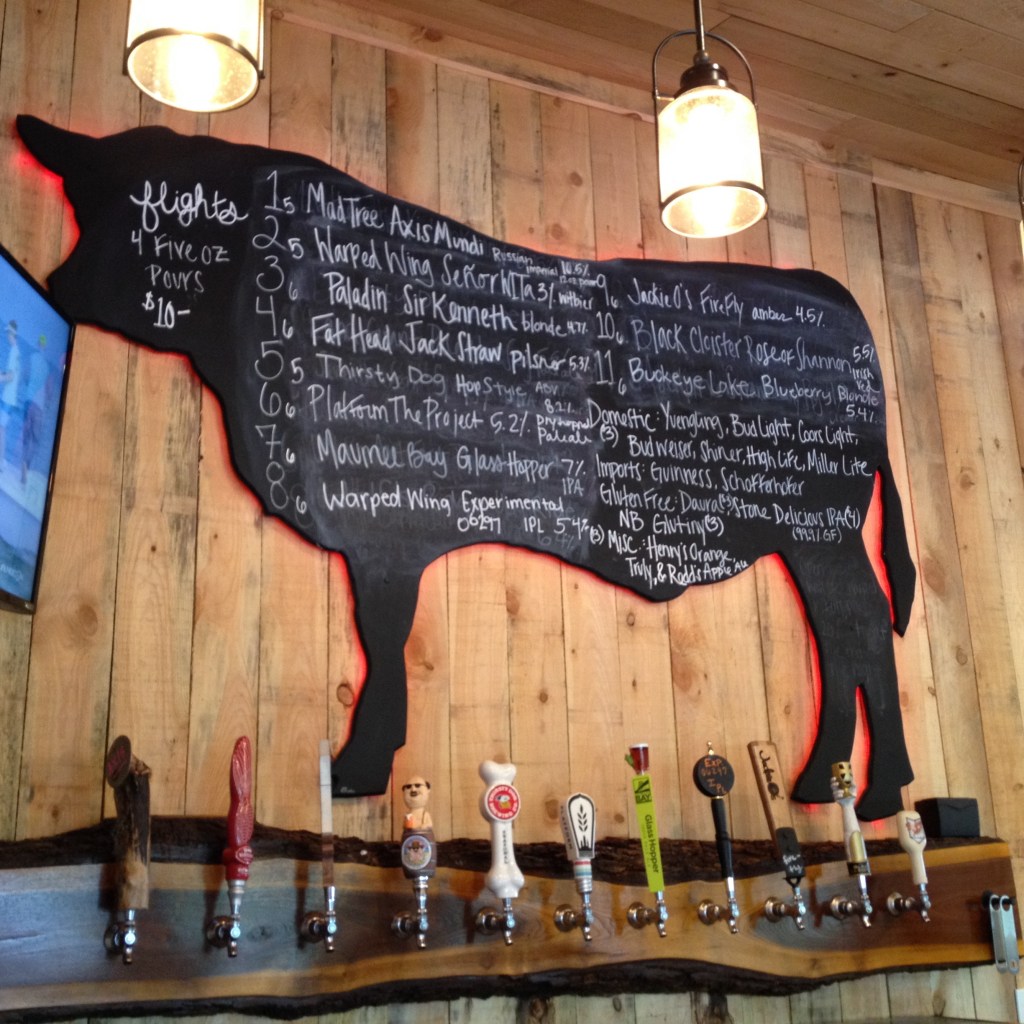 flights
4 Five oz
Pours
$10-
1 5 MadTree Axis Mundi Russian imperial 10.5%
2 5 Warped Wing Señor Wita 3% witbier
3 6 Paladin Sir Kenneth blonde 4.7%
4 6 Fat Head Jack Straw pilsner 5.3%
5 5 Thirsty Dog Hop Style
8.2%
6 6 Platform The Project 5.2% Dry hopped
Pale ale
7 6 Maumee Bay Glass Hopper 7%
IPA
8 6 Warped Wing Experimental
06297 IPL 5.4%
6.4%
9 6 Jackie O's FireFly amber 4.5%
10 6 Black Cloister Rose of Sharon 5.5%
Irish
Red
11 6 Buckeye Lake Blueberry Blonde
5.4%
Domestic: Yuengling, Bud Light, Coors Light,
(3) Budweiser, Shiner, High Life, Miller Lite
Imports: Guinness, Schofferhofer
Gluten Free: Daura(5) Stone Delicious IPA(4)
NB Glutiny(3) (99.9% GF)
(3) Misc: Henny's Orange,
Truly, & Redd's Apple Ale
Glass Hopper
Exp
06297